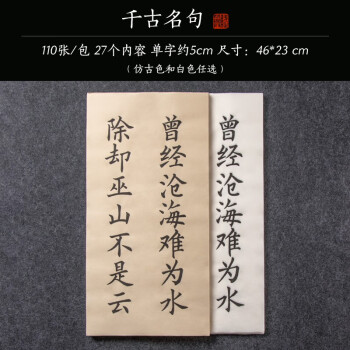 千古名句
110张/包 27个内容 单字约5cm 尺寸：46*23 cm
（仿古色和白色任选）
曾经沧海难为水
除却巫山不是云
曾经沧海难为水